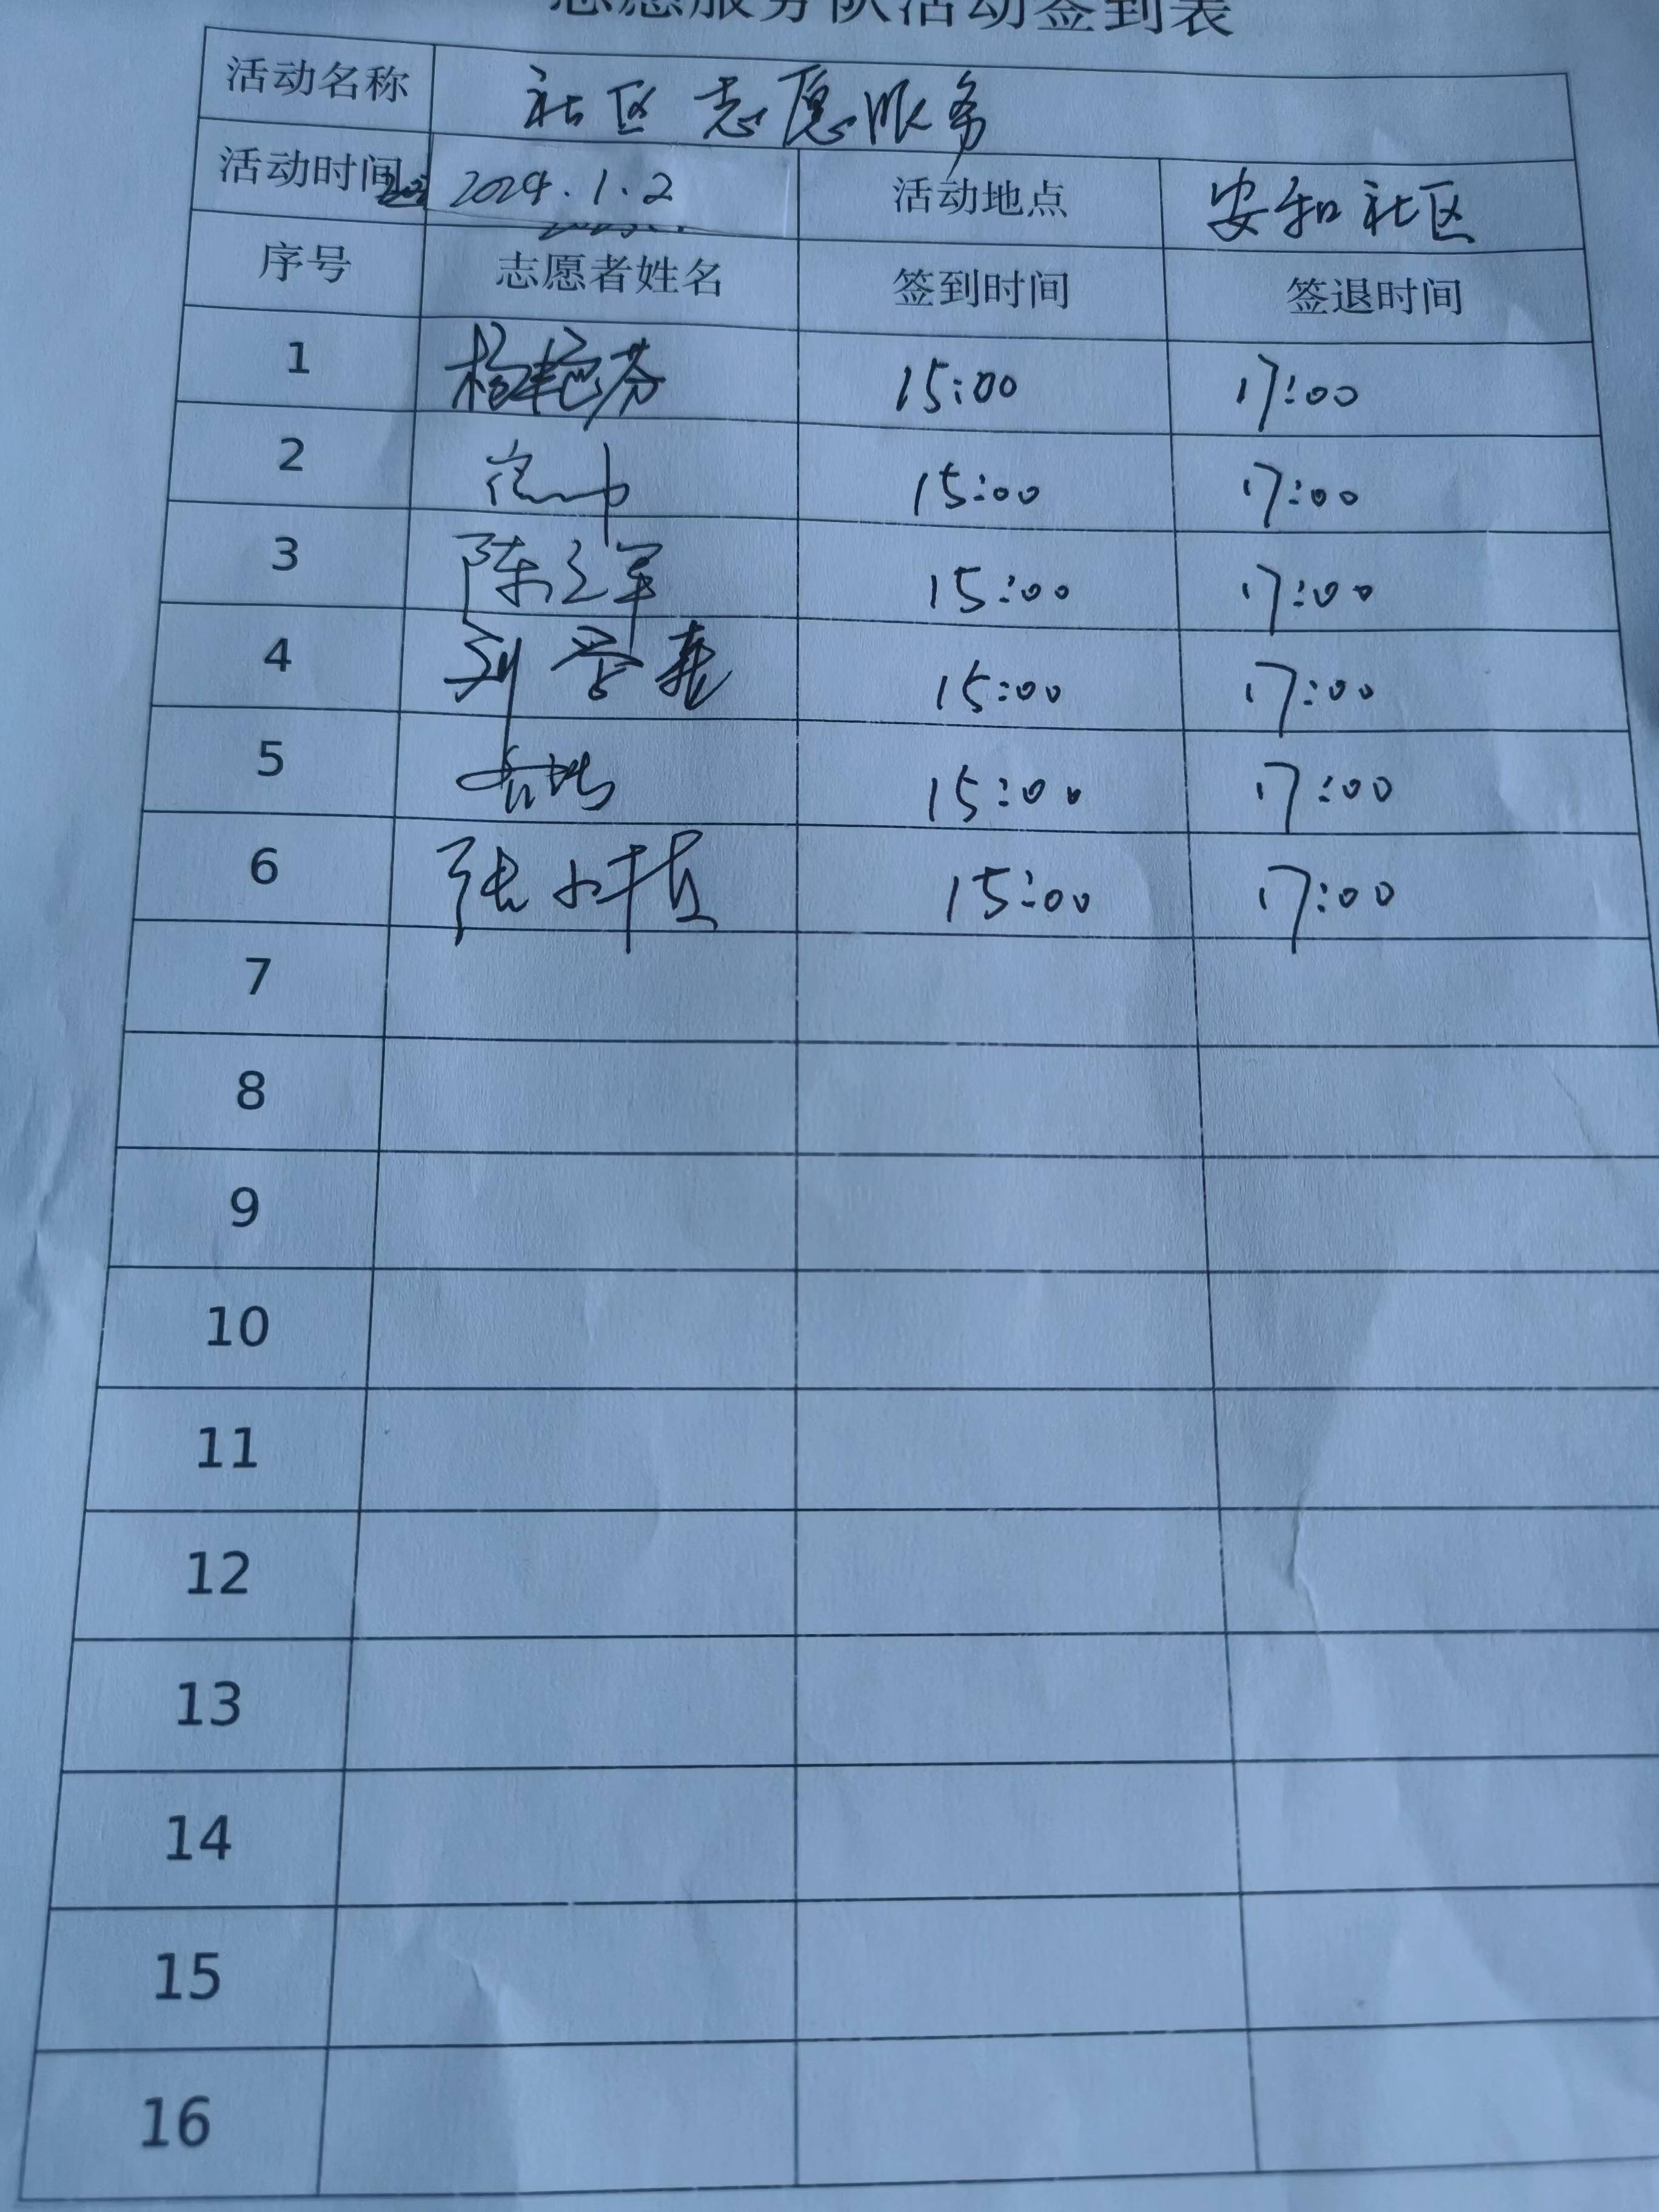 志愿服务队活动签到表
活动名称 社区志愿服务
活动时间 2024.1.2 活动地点 安和社区
序号 志愿者姓名 签到时间 签退时间
1 杨艳芬 15:00 17:00
2 15:00 17:00
3 陈之军 15:00 17:00
4 刘学尧 15:00 17:00
5 15:00 17:00
6 张小枝 15:00 17:00
7
8
9
10
11
12
13
14
15
16